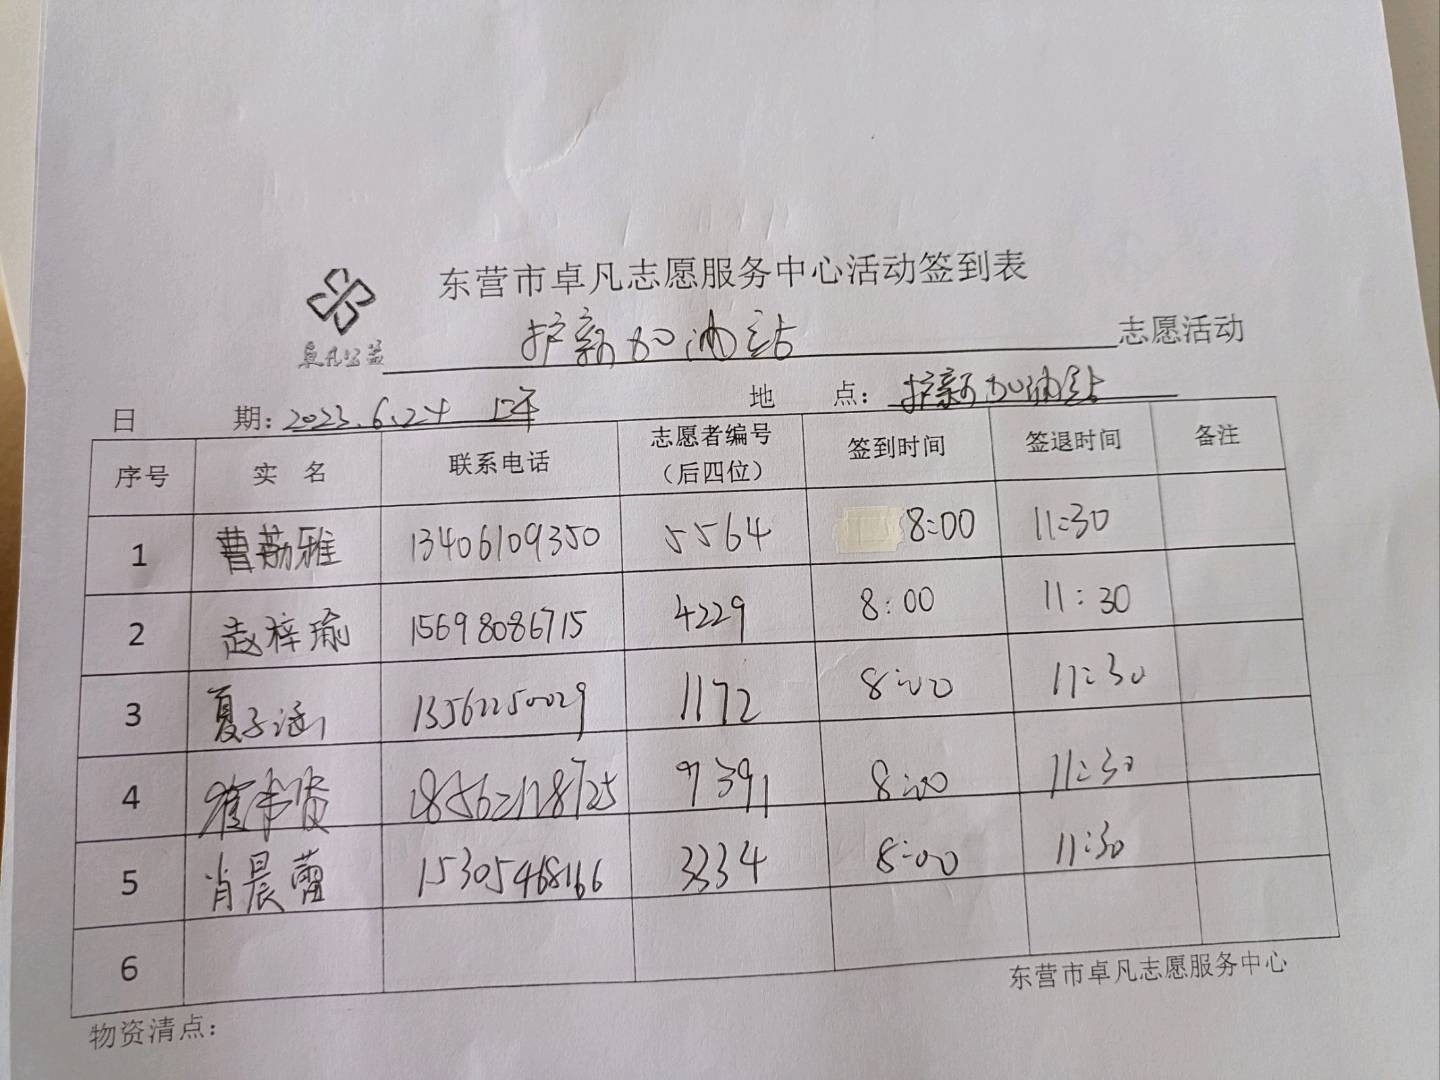 东营市卓凡志愿服务中心活动签到表
卓凡公益
护新加油站 志愿活动
日 期：2023.6.24 上午 地 点：护新加油站
序号 实 名 联系电话 志愿者编号（后四位） 签到时间 签退时间 备注
1 曹荔雅 13406109350 5564 8:00 11:30
2 赵梓瑜 15698086715 4229 8:00 11:30
3 夏子涵 13562250029 1172 8:00 11:30
4 18562128725 9391 8:00 11:30
5 肖晨蕾 15305468166 3334 8:00 11:30
6
东营市卓凡志愿服务中心
物资清点：